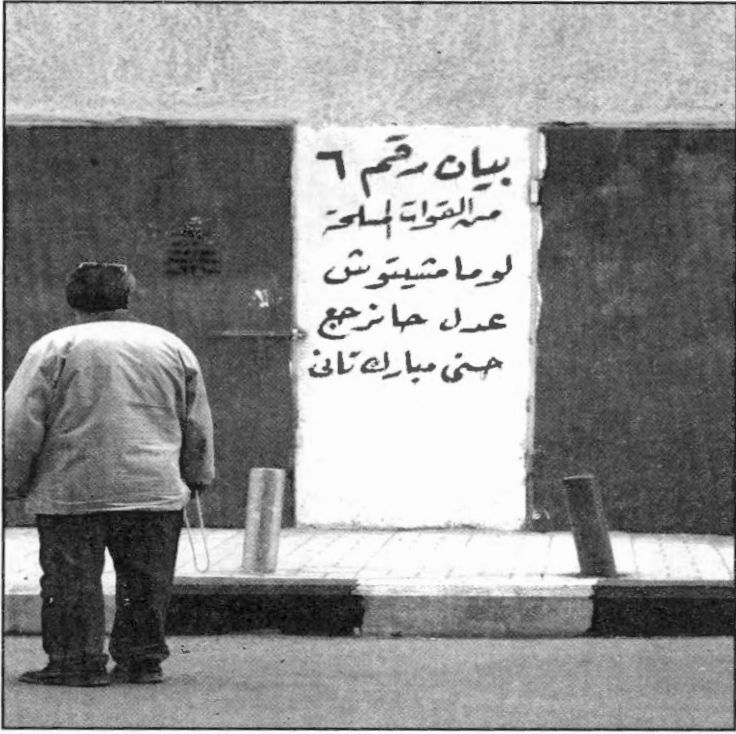 بيان رقم ٦
من القوات المسلحة
لو ما مشيتوش
عدل حانرجع
حسني مبارك تاني